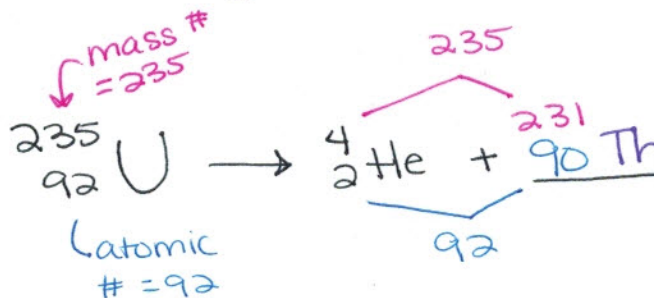 mass #
= 235
235
235
92 U → 4 2 He + 231 90 Th
92
atomic
# = 92